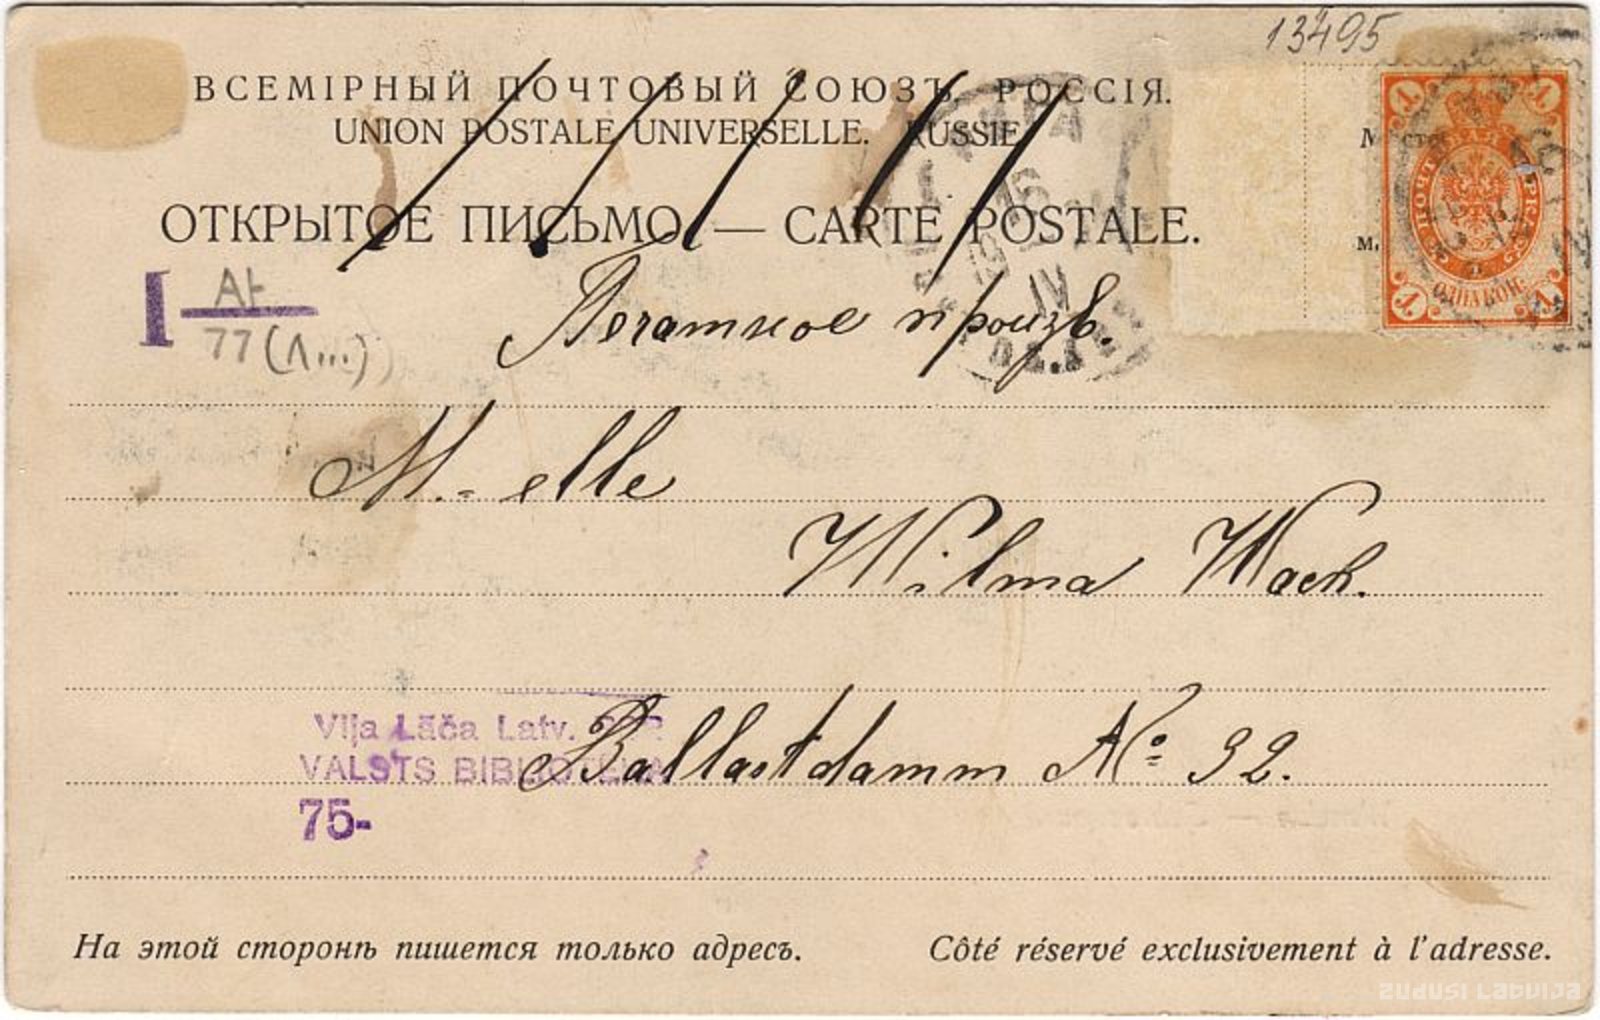 13495
ВСЕМІРНЫЙ ПОЧТОВЫЙ СОЮЗЪ. РОССІЯ.
UNION POSTALE UNIVERSELLE. RUSSIE
ОТКРЫТОЕ ПИСЬМО — CARTE POSTALE.
1 1
ОДНА КОП.
1 1
I
77 (Л...)
Печатное произв.
M.-elle
Wilma Wach.
Viļa Lāča Latv. PSR
VALSTS BIBLIOTEKA
Ballastdamm No 32.
75-
На этой сторонѣ пишется только адресъ. Côté réservé exclusivement à l'adresse.
zudusi Latvija